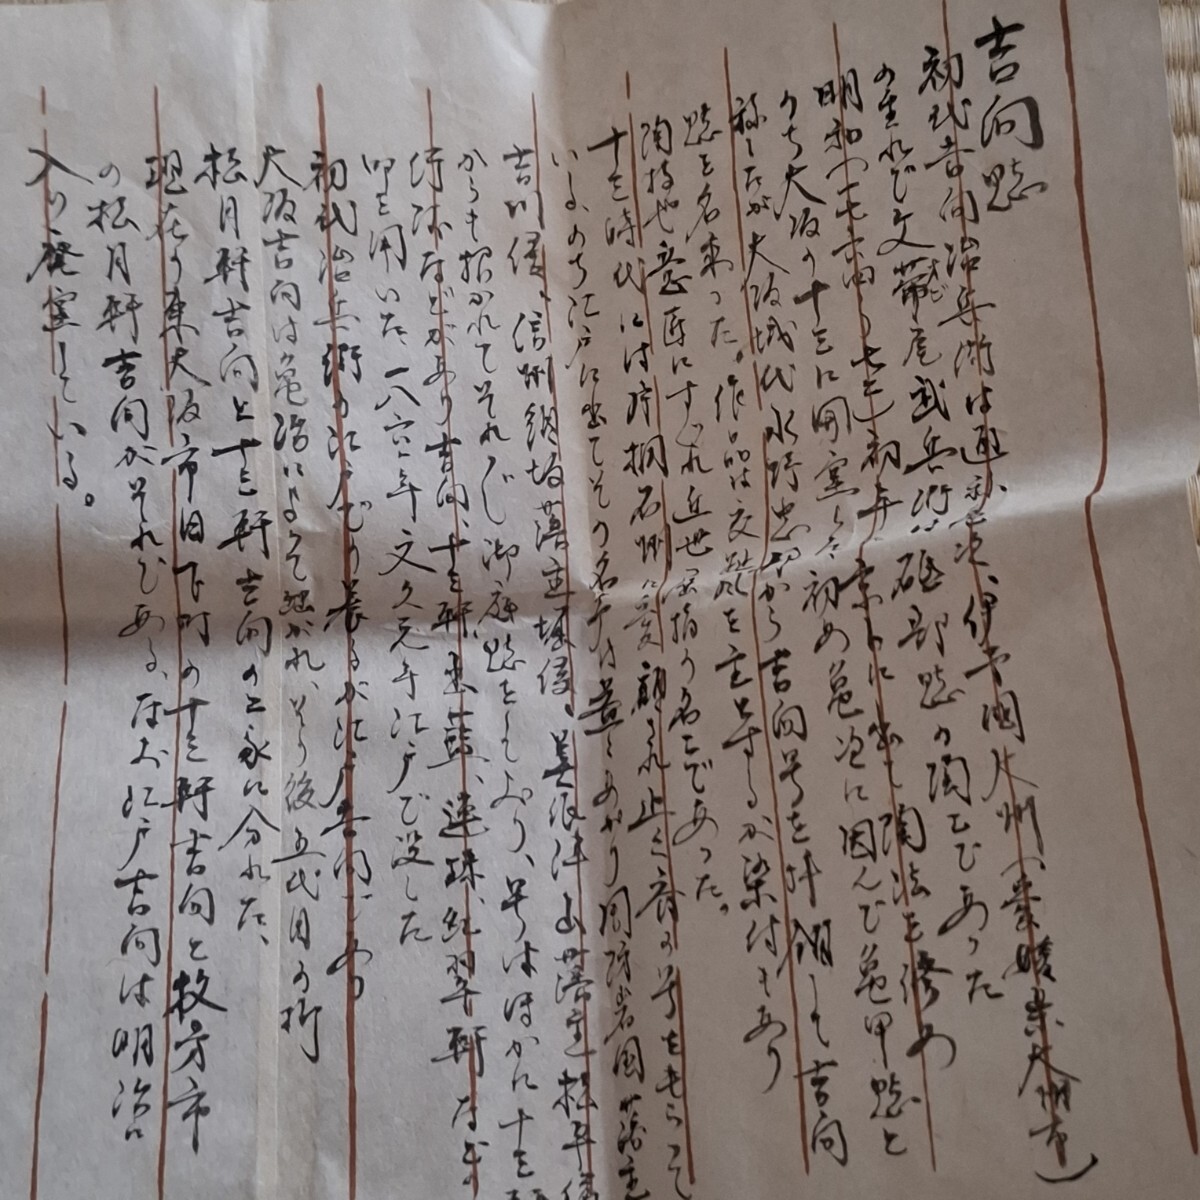 吉向焼
初代吉向治兵衛は通称亀次、伊予国大州(愛媛県大州市)
の生れで父帯屋武兵衛は砥部焼の陶工であった
明和 初年 京に出て陶法を修め
のち大阪の十三に開窯した初め亀次に因んで亀甲焼と
称したが大阪城代水野忠邦から吉向号を拝領して吉向
焼を名乗った。作品は交趾風を主とするが染付もあり
陶技也意匠にすぐれ近世屈指の名工であった。
十三時代には片桐石州に愛顧され 斎の号をもらって
いる、のち江戸に出てその名声は益々あがり周防岩国藩主
吉川侯、信州須坂藩主堀侯、美濃津山藩主松平侯
からも招かれてそれぞれ御庭焼をしており、号はほかに十三軒
行阿などがあり吉向、十三軒、出藍、連珠、紅翠軒などの
印を用いた 一八六一年文久元年江戸で没した
初代治兵衛の江戸での養子が江戸吉向であり
大阪吉向は亀治によって継がれ、その後五代目の折
松月軒吉向と十三軒吉向の二家に分れた、
現在の東大阪市日下町の十三軒吉向と枚方市
の松月軒吉向がそれである、なお江戸吉向は明治に
入り廃窯している。